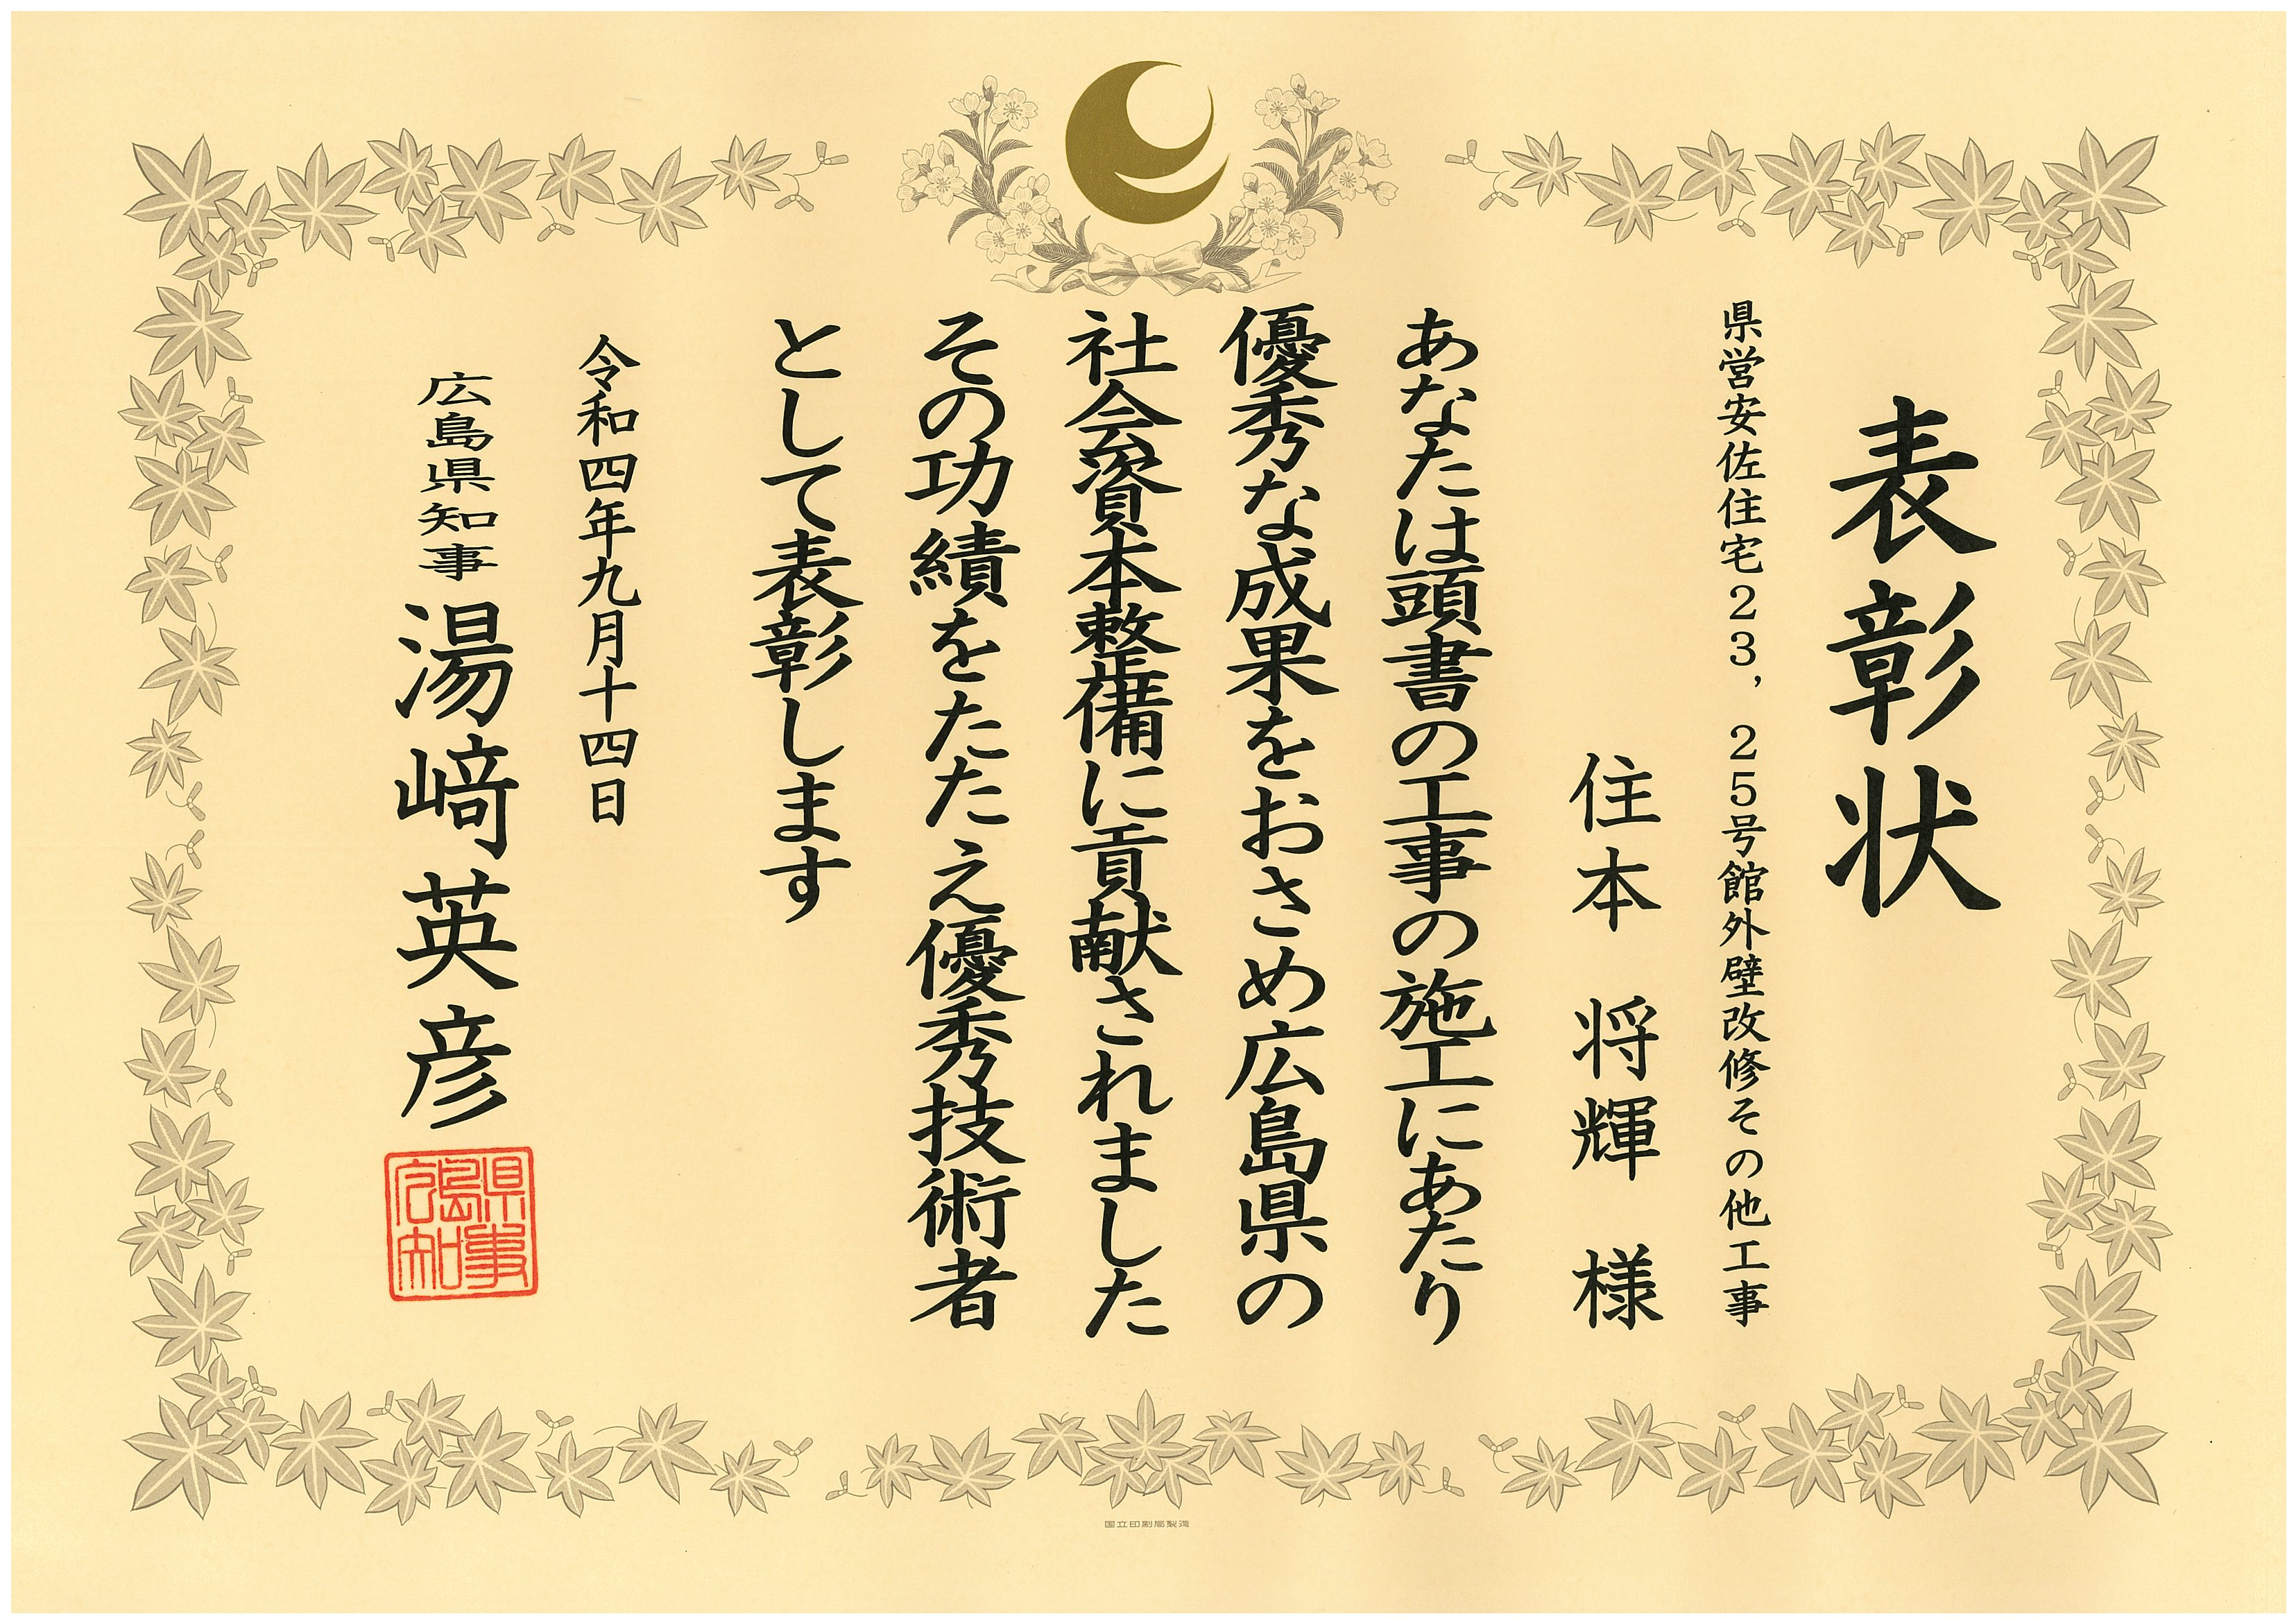 表彰状
県営安佐住宅２３，２５号館外壁改修その他工事
住本 将輝 様
あなたは頭書の工事の施工にあたり
優秀な成果をおさめ広島県の
社会資本整備に貢献されました
その功績をたたえ優秀技術者
として表彰します
令和四年九月十四日
広島県知事 湯﨑英彦
広島県知事
国立印刷局製造